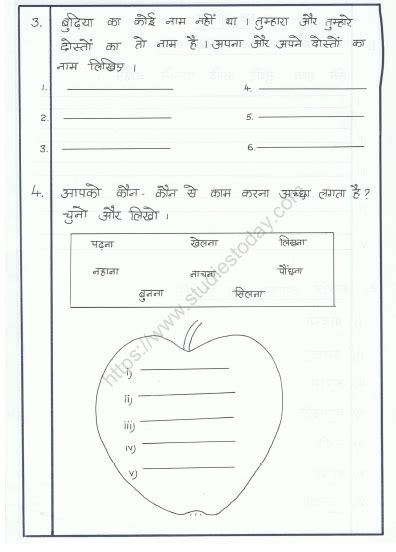 3. बुढ़िया का कोई नाम नहीं था । तुम्हारा और तुम्हारे
दोस्तों का तो नाम है । अपना और अपने दोस्तों का
नाम लिखिए ।
1. 4.
2. 5.
3. 6.
4. आपको कौन - कौन से काम करना अच्छा लगता है ?
चुनो और लिखो ।
पढ़ना खेलना लिखना
नहाना नाचना पौंधना
बुनना सिलना
i)
ii)
iii)
iv)
v)
https://www.studiestoday.com